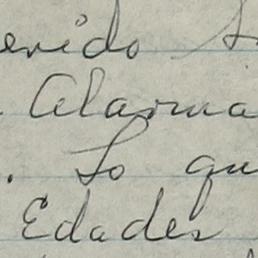 erido
Alarma
. Lo qu
Edades